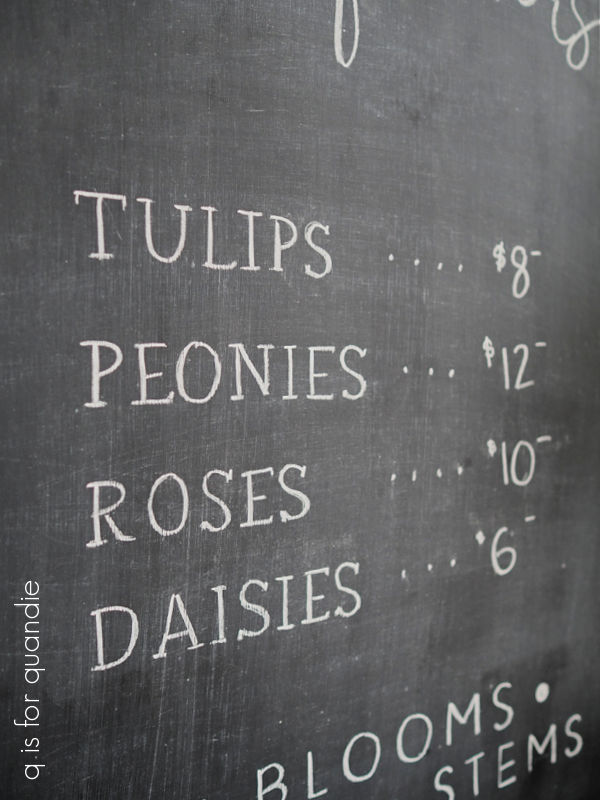 TULIPS .... $8-
PEONIES ... $12-
ROSES .... $10-
DAISIES ... $6-
BLOOMS •
STEMS
q.is for quandie